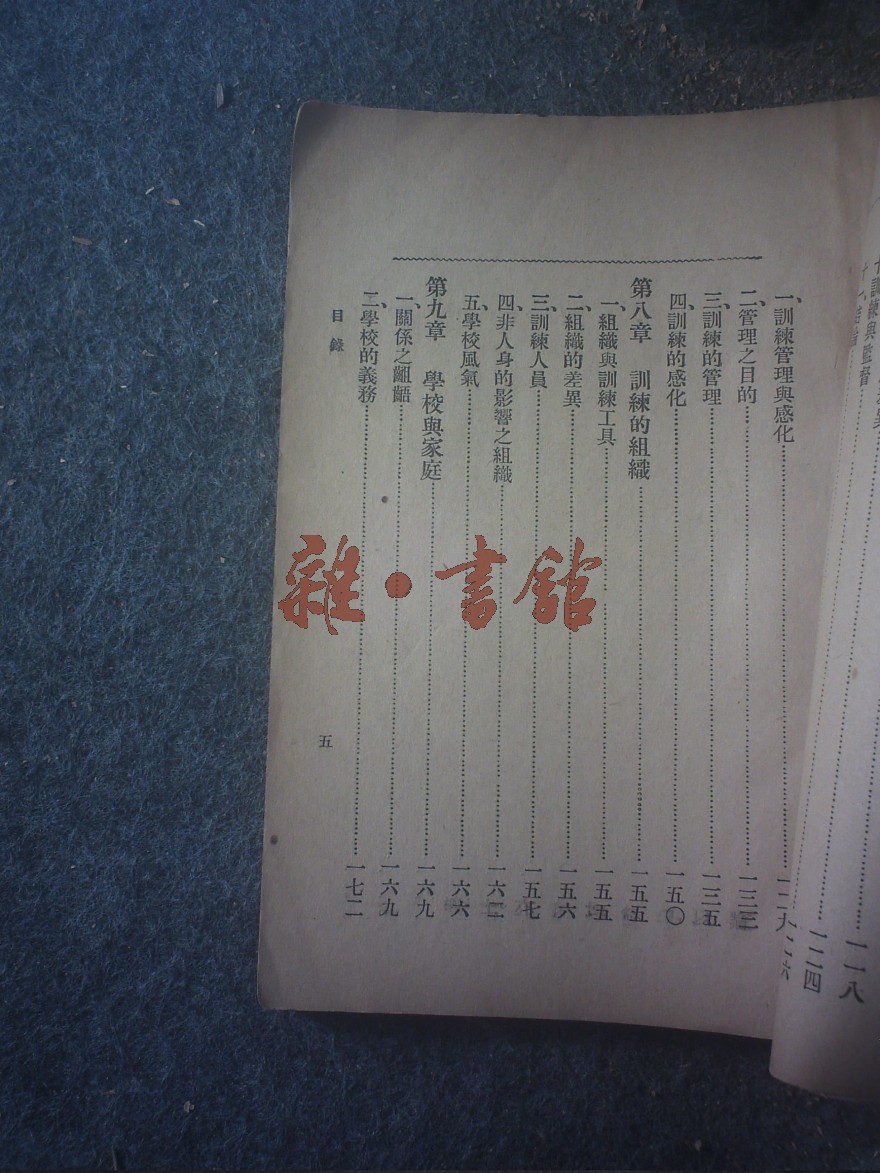 一一八
一二四
一二六
一、訓練管理與感化
二、管理之目的 一三三
三、訓練的管理 一三五
四、訓練的感化 一五〇
第八章 訓練的組織 一五五
一、組織與訓練工具 一五五
二、組織的差異 一五六
三、訓練人員 一五七
四、非人身的影響之組織 一六二
五、學校風氣 一六六
第九章 學校與家庭 一六九
一、關係之齟齬 一六九
二、學校的義務 一七二
目錄
五
雜·書館